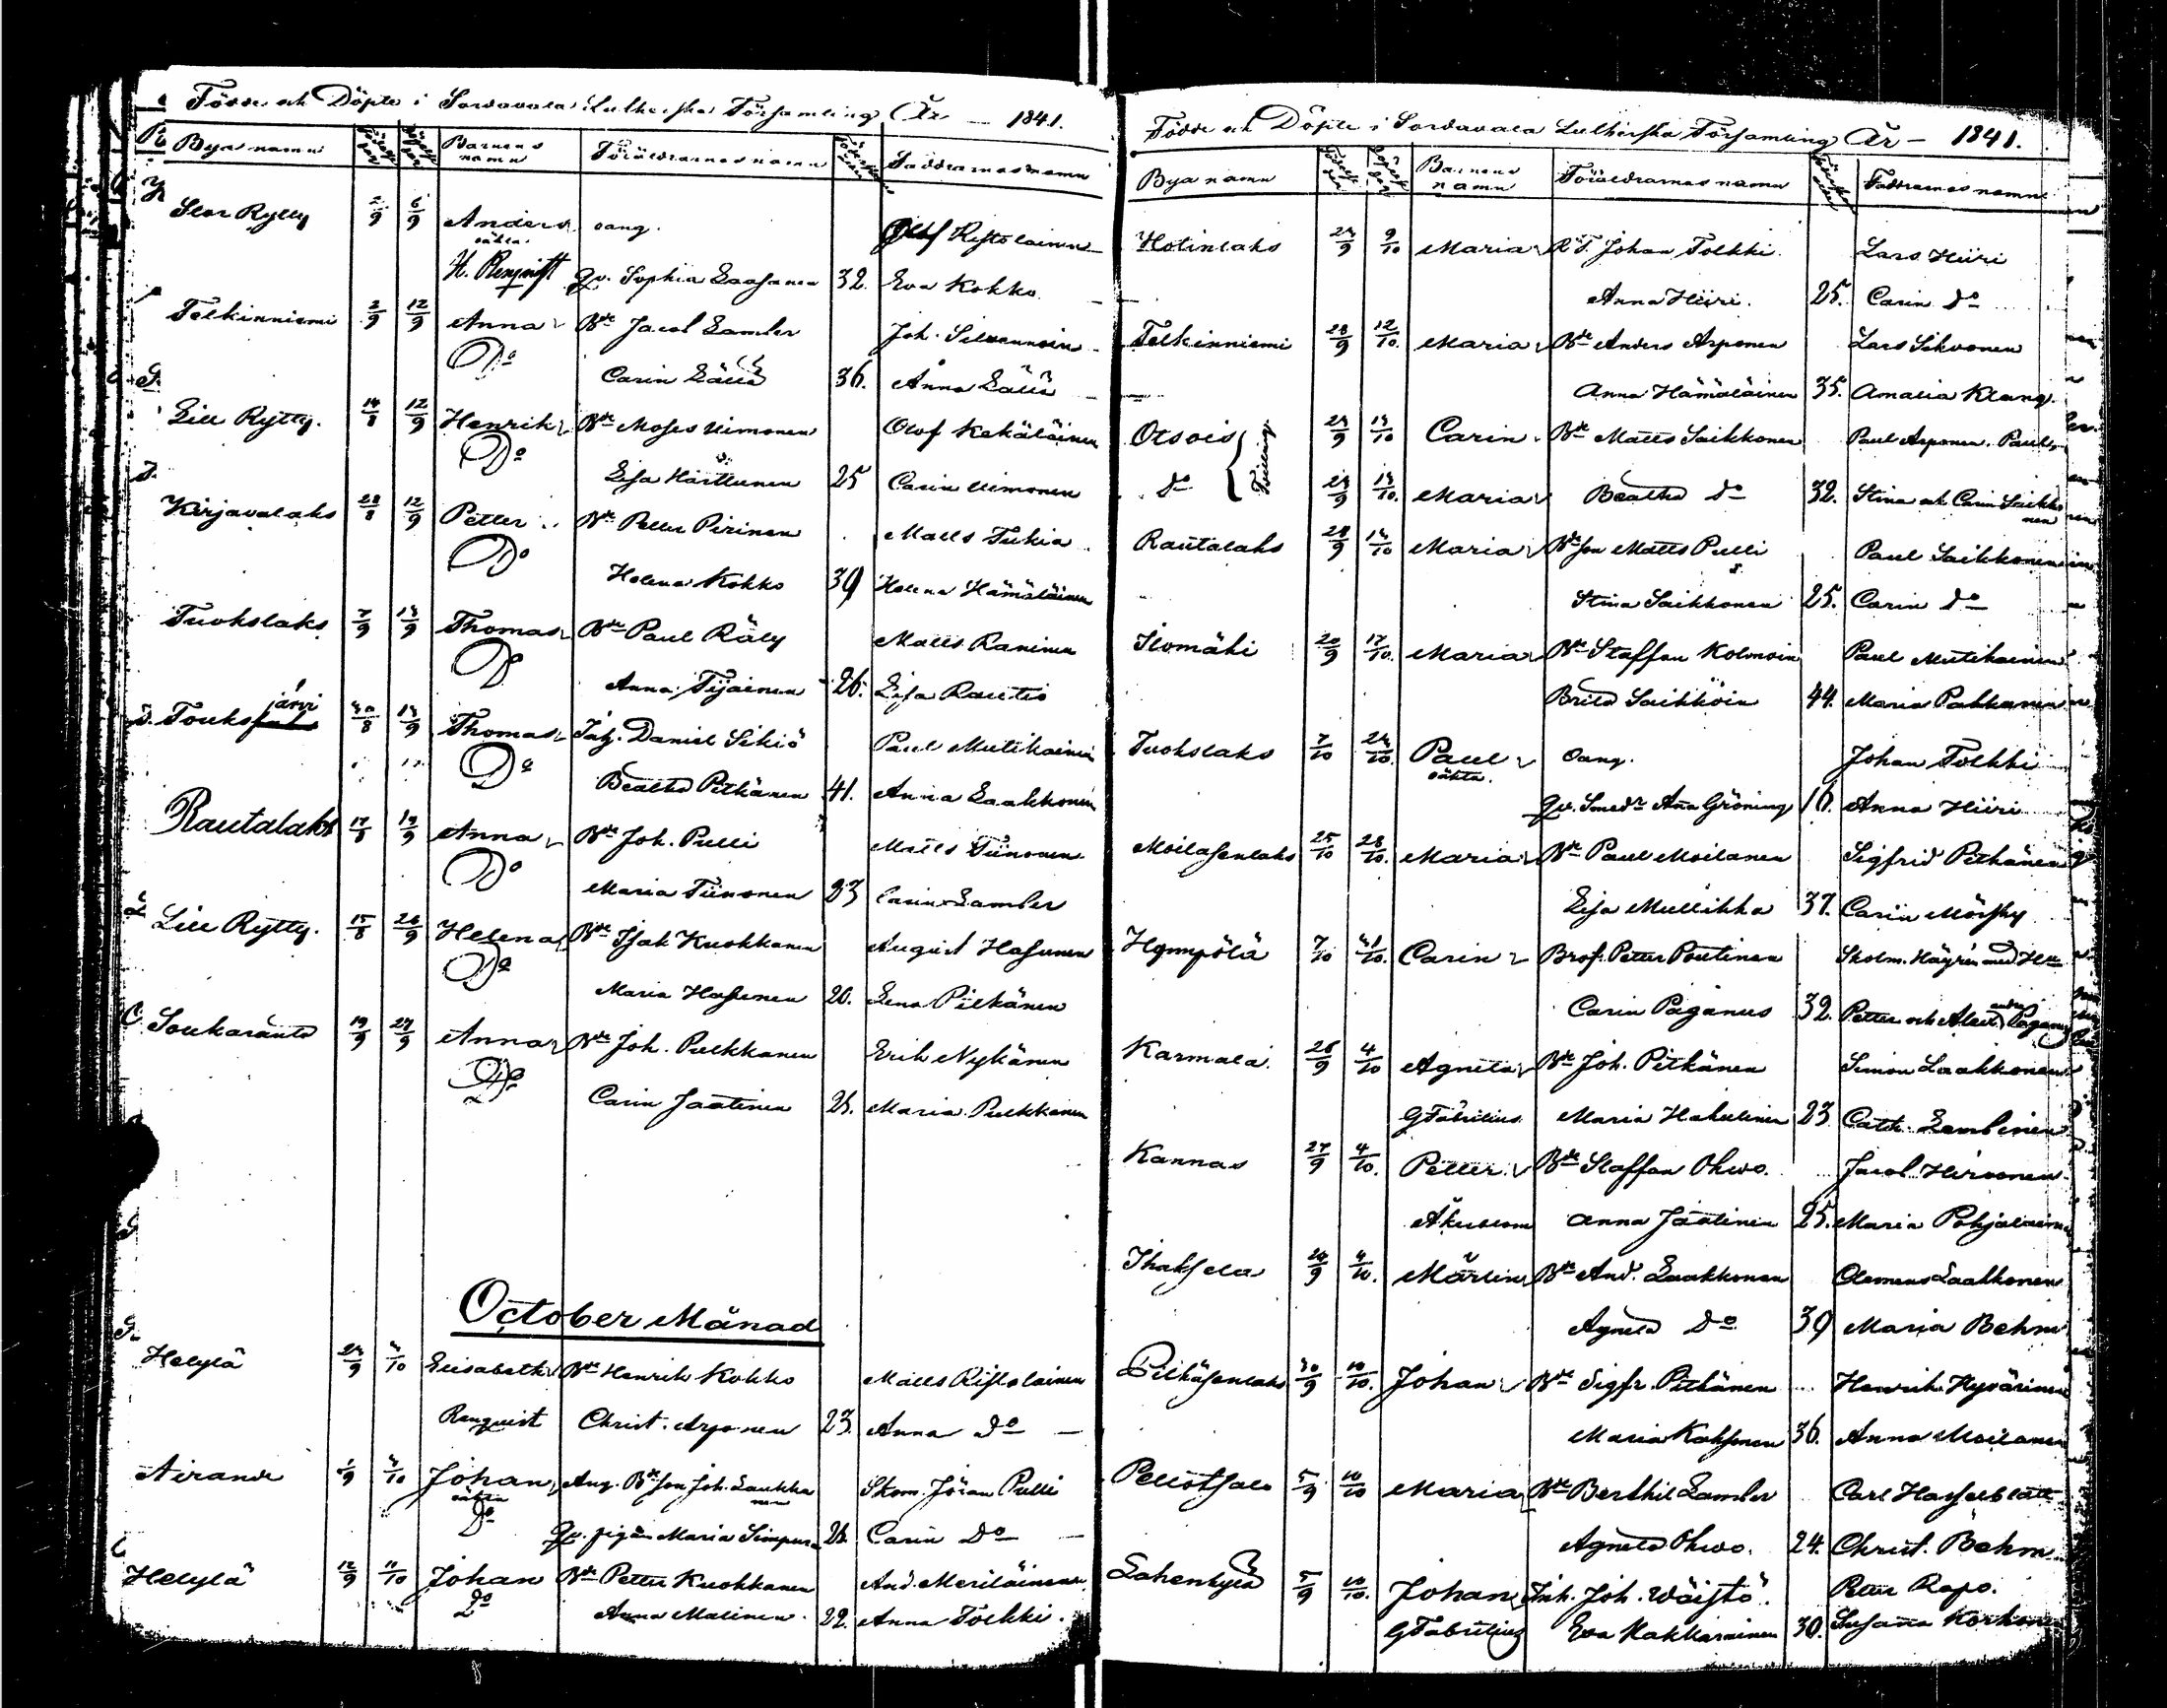 Födde och Döpte i Sordavala Lutherska Församling År — 1841.
Byanamn Barnens namn Föräldrarnas namn Faddrarnas namn
Stor Rytty 2/9 6/9 Anders oang. Olof Ristolainen
oäkta
H. Renqvist Qv. Sophia Laasanen 32. Eva Kokko
Telkinniemi 2/9 12/9 Anna Bde Jacob Lamber Joh. Silvennoin
Do Carin Lällä 36. Anna Lällä
Lill Rytty. 14/8 12/9 Henrik Bde Moses Uimonen Olof Kekäläinen
Do Lisa Harttunen 25 Carin Uimonen
Kirjavalaks 28/8 12/9 Petter Bde Petter Pirinen Matts Tukia
Do Helena Kokko 39 Helena Hämäläinen
Tuokslaks 7/9 13/9 Thomas Bde Paul Räty Matts Raninen
Do Anna Tijainen 26. Lisa Rautio
Touksjärvi 30/8 13/9 Thomas Inh. Daniel Sikiö Paul Mutikainen
Do Beatha Pitkänen 41. Anna Laakkonen
Rautalaks 17/8 19/9 Anna Bde Joh. Pulli Matts Tiinonen
Do Maria Tiinonen 23 Carin Lamber
Lill Rytty. 15/8 26/9 Helena Bde Isak Kuokkanen August Hasunen
Do Maria Hasunen 20. Lena Pitkänen
Soukaranta 19/9 27/9 Anna Bde Joh. Pulkkanen Erik Nykänen
Do Carin Jaatinen 26. Maria Pulkkanen
October Månad
Helylä 24/9 3/10 Elisabeth Bde Henrik Kokko Matts Ristolainen
Renqvist Christ. Arponen 23. Anna Do
Airanne 1/9 3/10 Johan Ang. Bde son Joh. Laukkanen Skom. Jöran Pulli
oäkta
Do Qv. pigan Maria Simpura 26. Carin Do
Helylä 12/9 11/10 Johan Bde Petter Kuokkanen And. Meriläinen
Do Anna Malinen. 22. Anna Tolkki.
Födde och Döpte i Sordavala Lutherska Församling År — 1841.
Byanamn Barnens namn Föräldrarnas namn Faddrarnas namn
Hotinlaks 24/9 9/10 Maria R.T. Johan Tolkki. Lars Hiiri
Anna Hiiri. 25. Carin Do
Telkinniemi 28/9 12/10 Maria Bde Anders Arponen Lars Sihvonen
Anna Hämäläinen 35. Amalia Klang.
Otsois 24/9 13/10 Carin Bde Matts Saikkonen Paul Arponen. Paul
Do Tvillingar 24/9 13/10 Maria Beatha Do 32. Stina och Carin Saikkonen
Rautalaks 28/9 13/10 Maria Bde son Matts Pulli Paul Saikkonen
Stina Saikkonen 25. Carin Do
Ilomäki 20/9 17/10 Maria Bde Staffan Kolmoin Paul Mutikainen
Brita Saikköin 44. Maria Pakkanen
Tuokslaks 7/10 24/10 Paul oang. Johan Tolkki
oäkta.
Qv. Smedr Anna Gröning 16. Anna Hiiri
Moilasenlaks 25/10 28/10 Maria Bde Paul Moilanen Sigfrid Pitkänen
Lisa Mullikka 37. Carin Mörsky
Hympölä 7/10 31/10 Carin Brof. Petter Poutinen Skolm. Häyrén med Hu
Carin Paganus 32. Petter och Alexandra Paganus
Karmala 26/9 4/10 Agneta Bde Joh. Pitkänen Simon Laakkonen
GFabritius Maria Hakulinen 23 Cath. Lambinen
Kannas 27/9 4/10 Petter Bde Staffan Ohvo. Jacob Hirvonen
Åkerblom Anna Jäätinen 25. Maria Pohjalainen
Ihaksela 20/9 4/10 Märtin Bde And. Laakkonen Clemens Laakkonen
Agneta Do 39 Maria Behm
Pitkäsenlaks 30/9 10/10 Johan Bde Sigfr. Pitkänen Henrik Hyvärinen
Maria Kaksonen 36. Anna Moilanen
Pellotsalo 5/9 10/10 Maria Bde Berthil Lamber Carl Hasselblatt
Agneta Ohvo. 24. Christ. Behm
Lahenkylä 5/9 10/10 Johan Inh. Joh. Wäistö. Petter Rapo.
GFabritius Eva Kakkarainen 30. Susana Korhonen